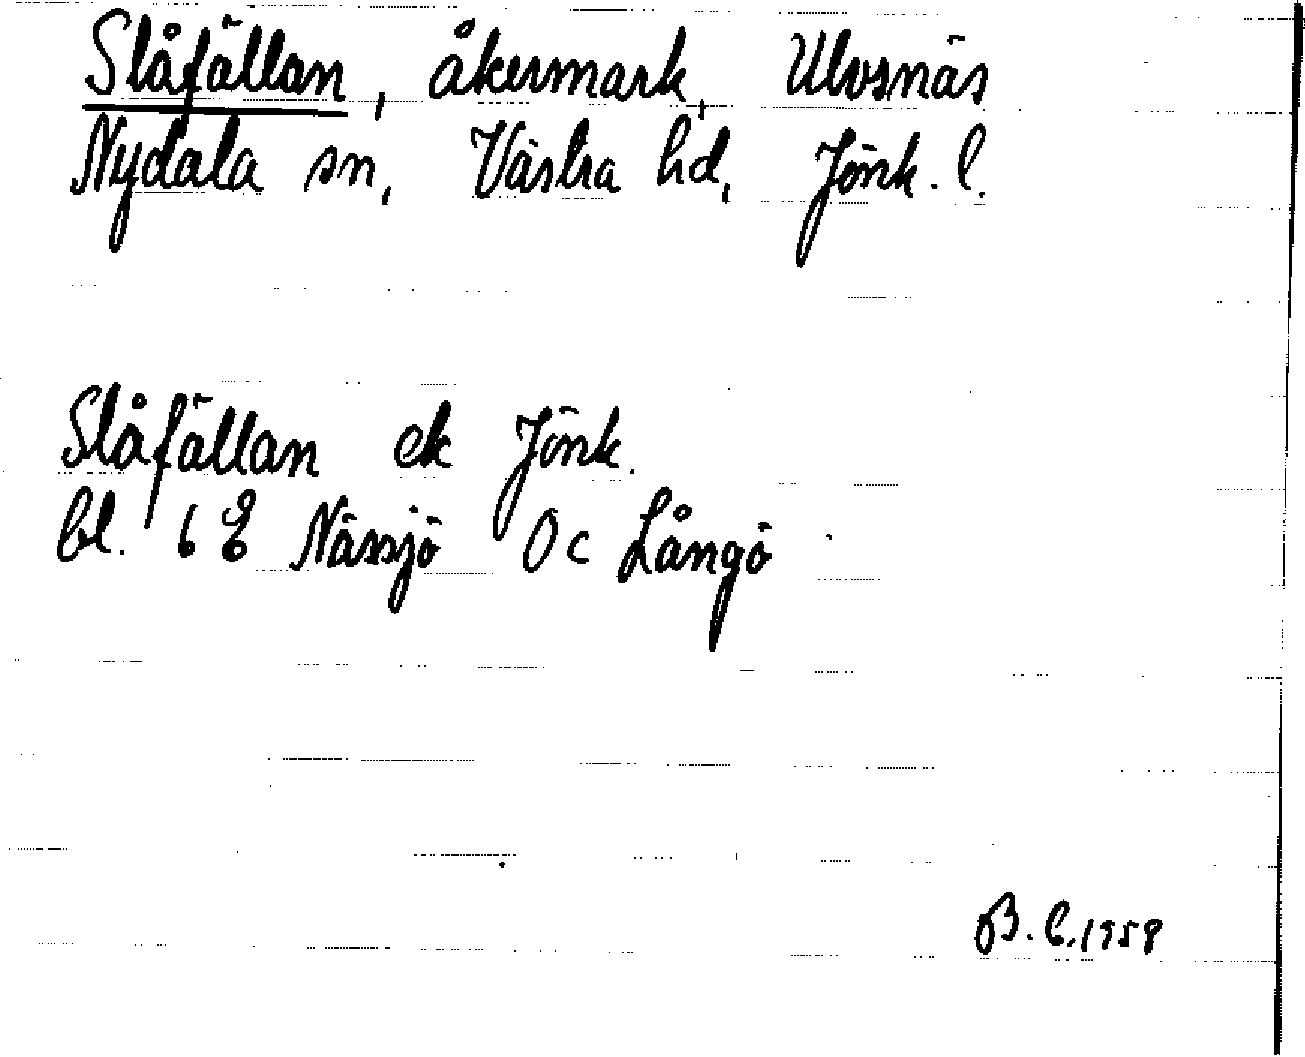 Slåfällan, åkermark, Ulvsnäs
Nydala sn, Västra hd, Jönk. l.
Slåfällan ek Jönk.
bl. 6 E Nässjö 0 c Långö
B. C. 1958